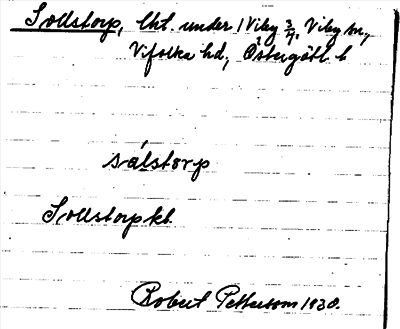 Sollstorp, lht. under 1 Viby 3/4, Viby sn,
Vifolka hd, Östergötl. l.
sålstorp
Sollstorp kb
Robert Pettersson 1930.